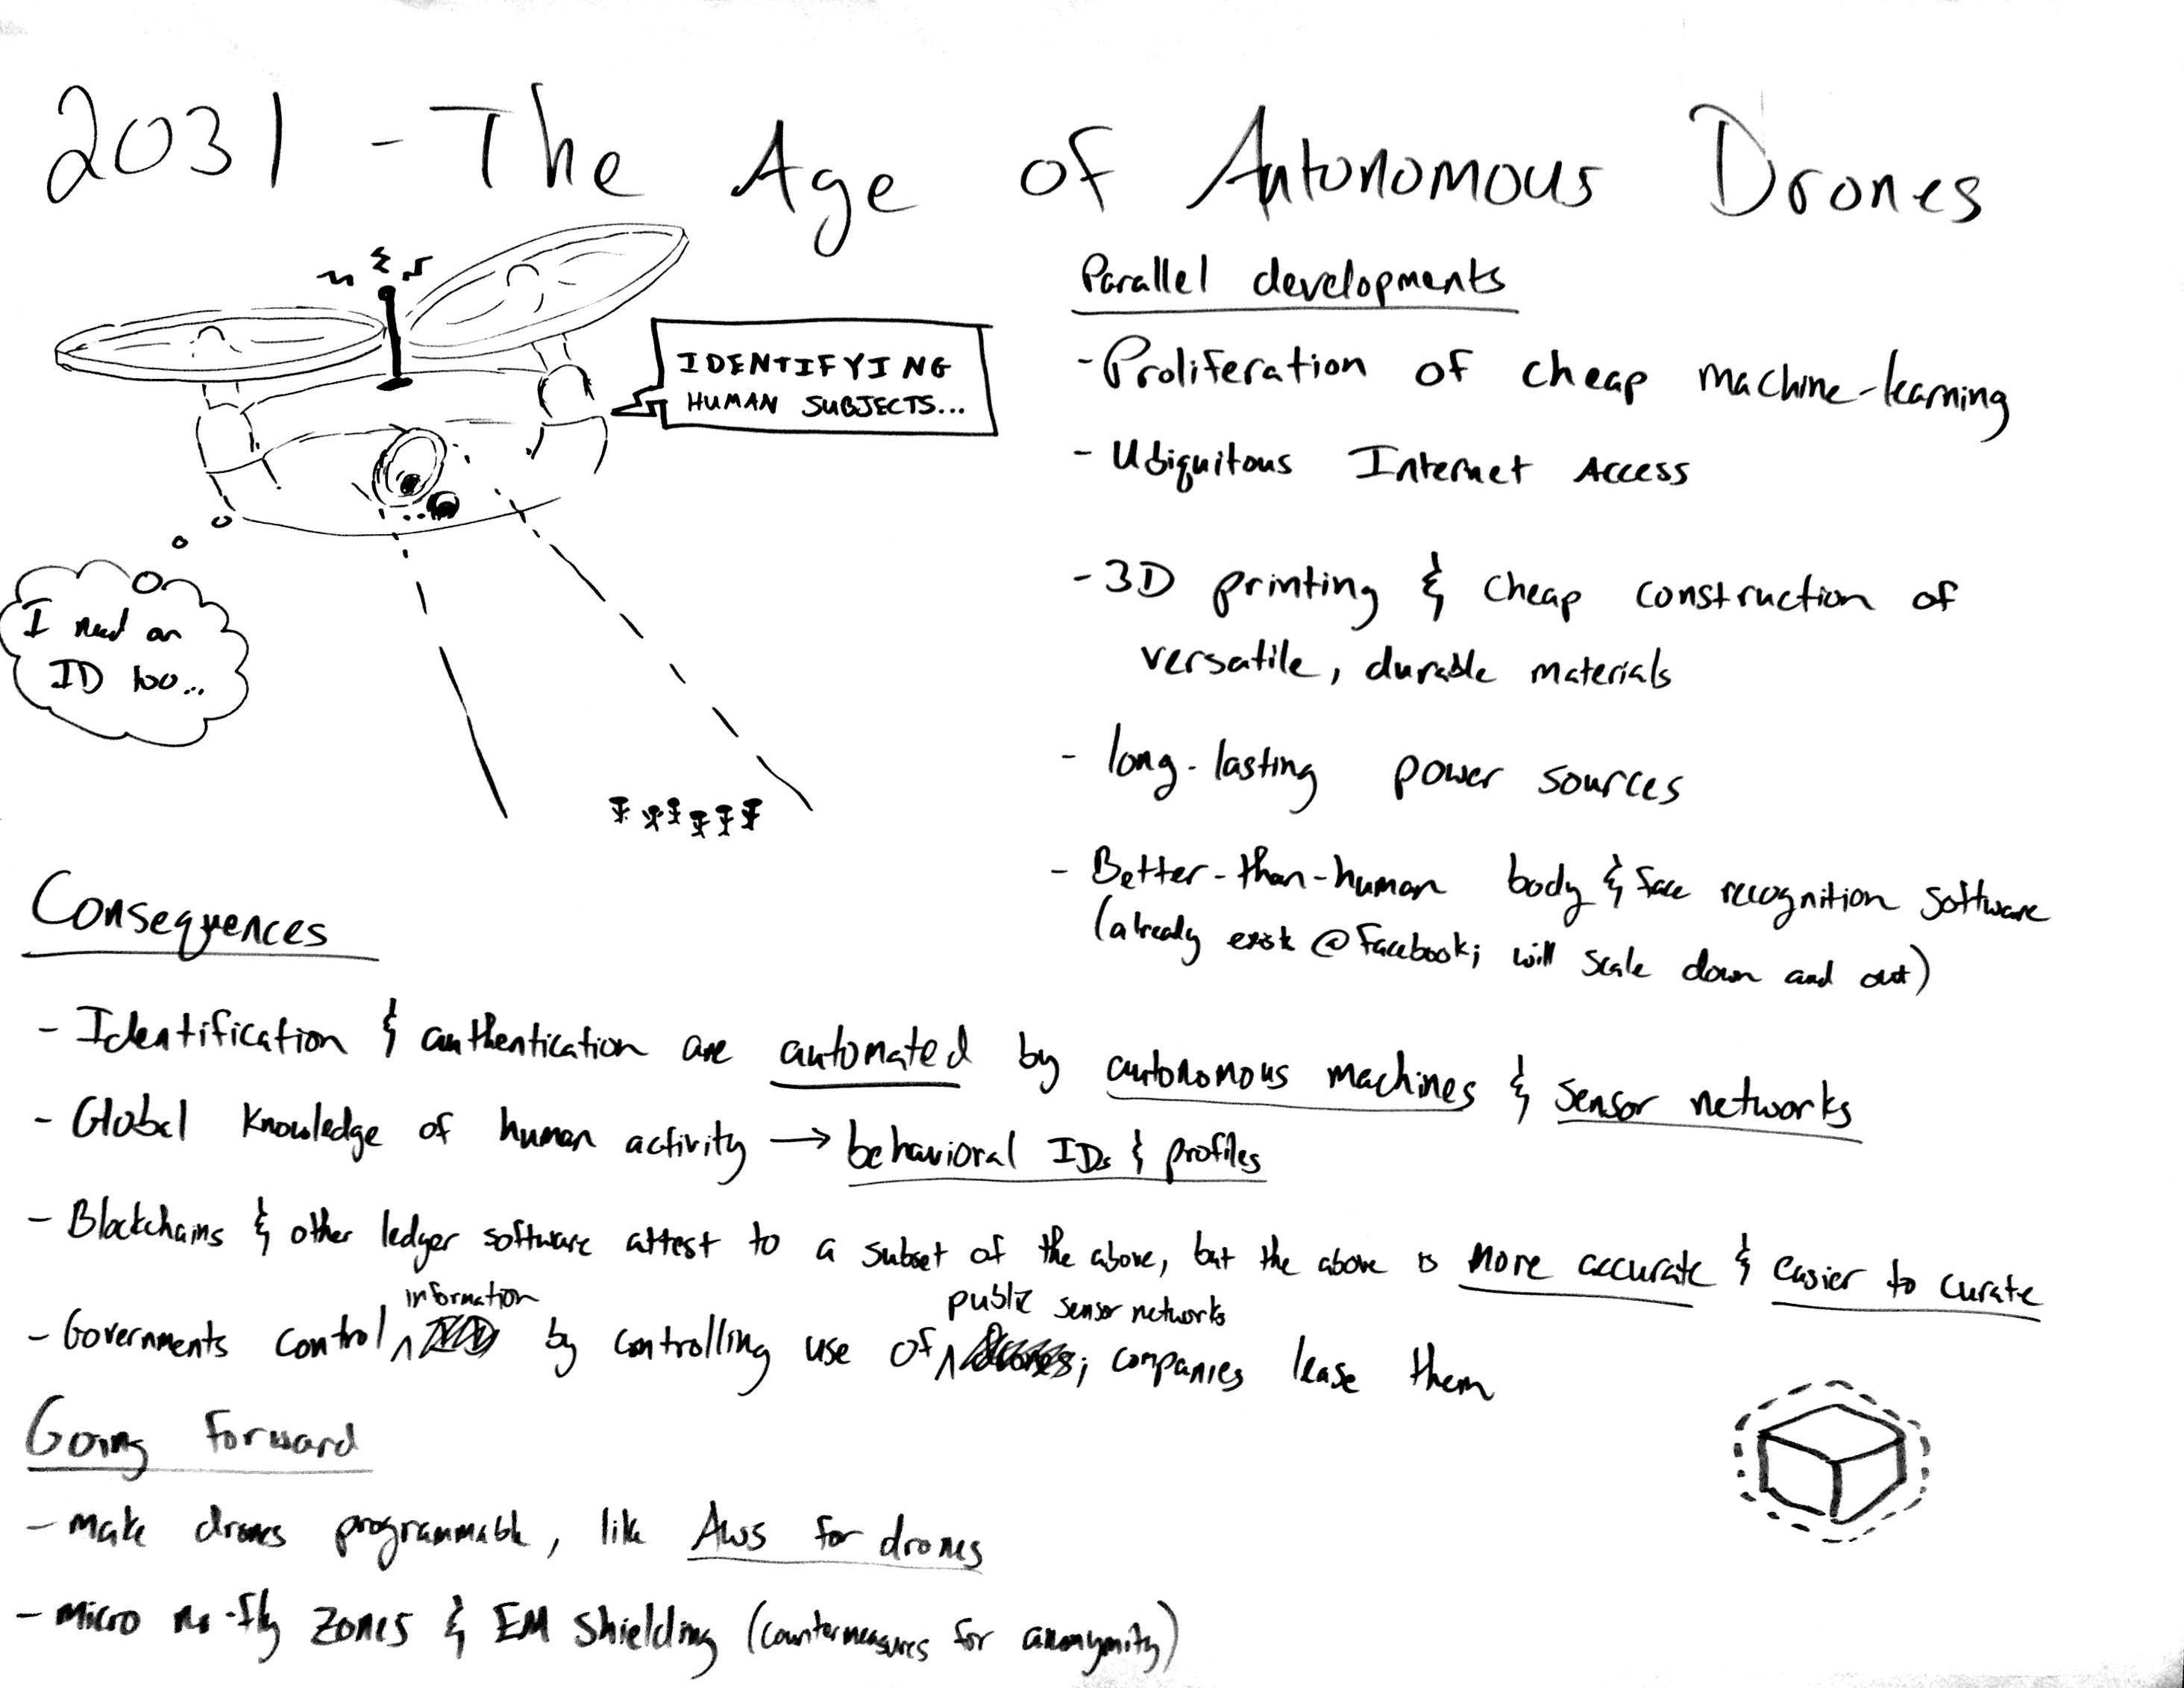 2031 - The Age of Autonomous Drones
IDENTIFYING
HUMAN SUBJECTS...
I need an
ID too...
Parallel developments
- Proliferation of cheap machine-learning
- Ubiquitous Internet Access
- 3D printing & cheap construction of
versatile, durable materials
- long-lasting power sources
- Better-than-human body & face recognition software
(already exist @ Facebook; will scale down and out)
Consequences
- Identification & authentication are automated by autonomous machines & sensor networks
- Global knowledge of human activity → behavioral IDs & profiles
- Blockchains & other ledger software attest to a subset of the above, but the above is more accurate & easier to curate
- Governments control information by controlling use of public sensor networks; companies lease them
Going Forward
- make drones programmable, like AWS for drones
- micro no-fly zones & EM shielding (countermeasures for anonymity)